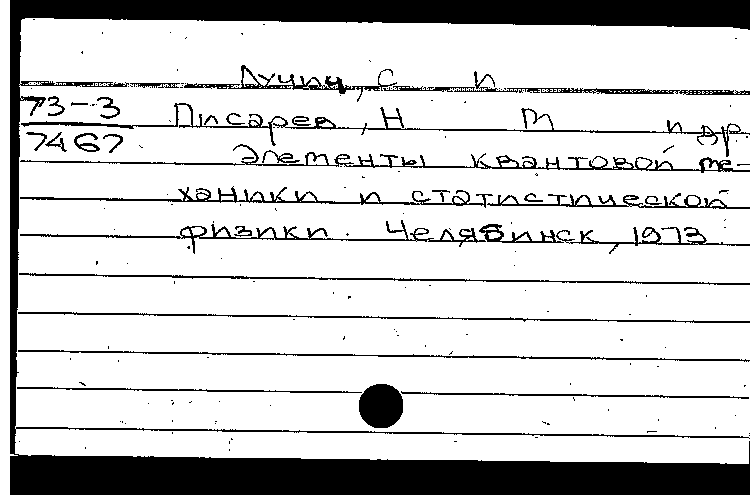 Лучич, С И
73-3
7467
Писарев, Н М и др.
Элементы квантовой ме-
ханики и статистической
физики. Челябинск, 1973